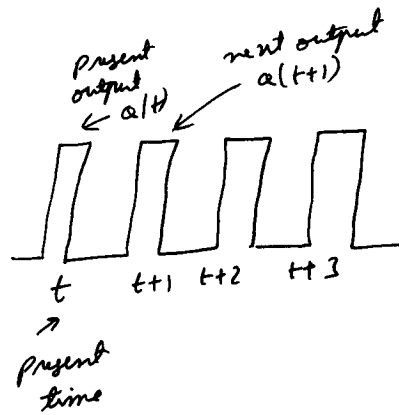 present
output
Q(t)
next output
Q(t+1)
t
t+1
t+2
t+3
present
time